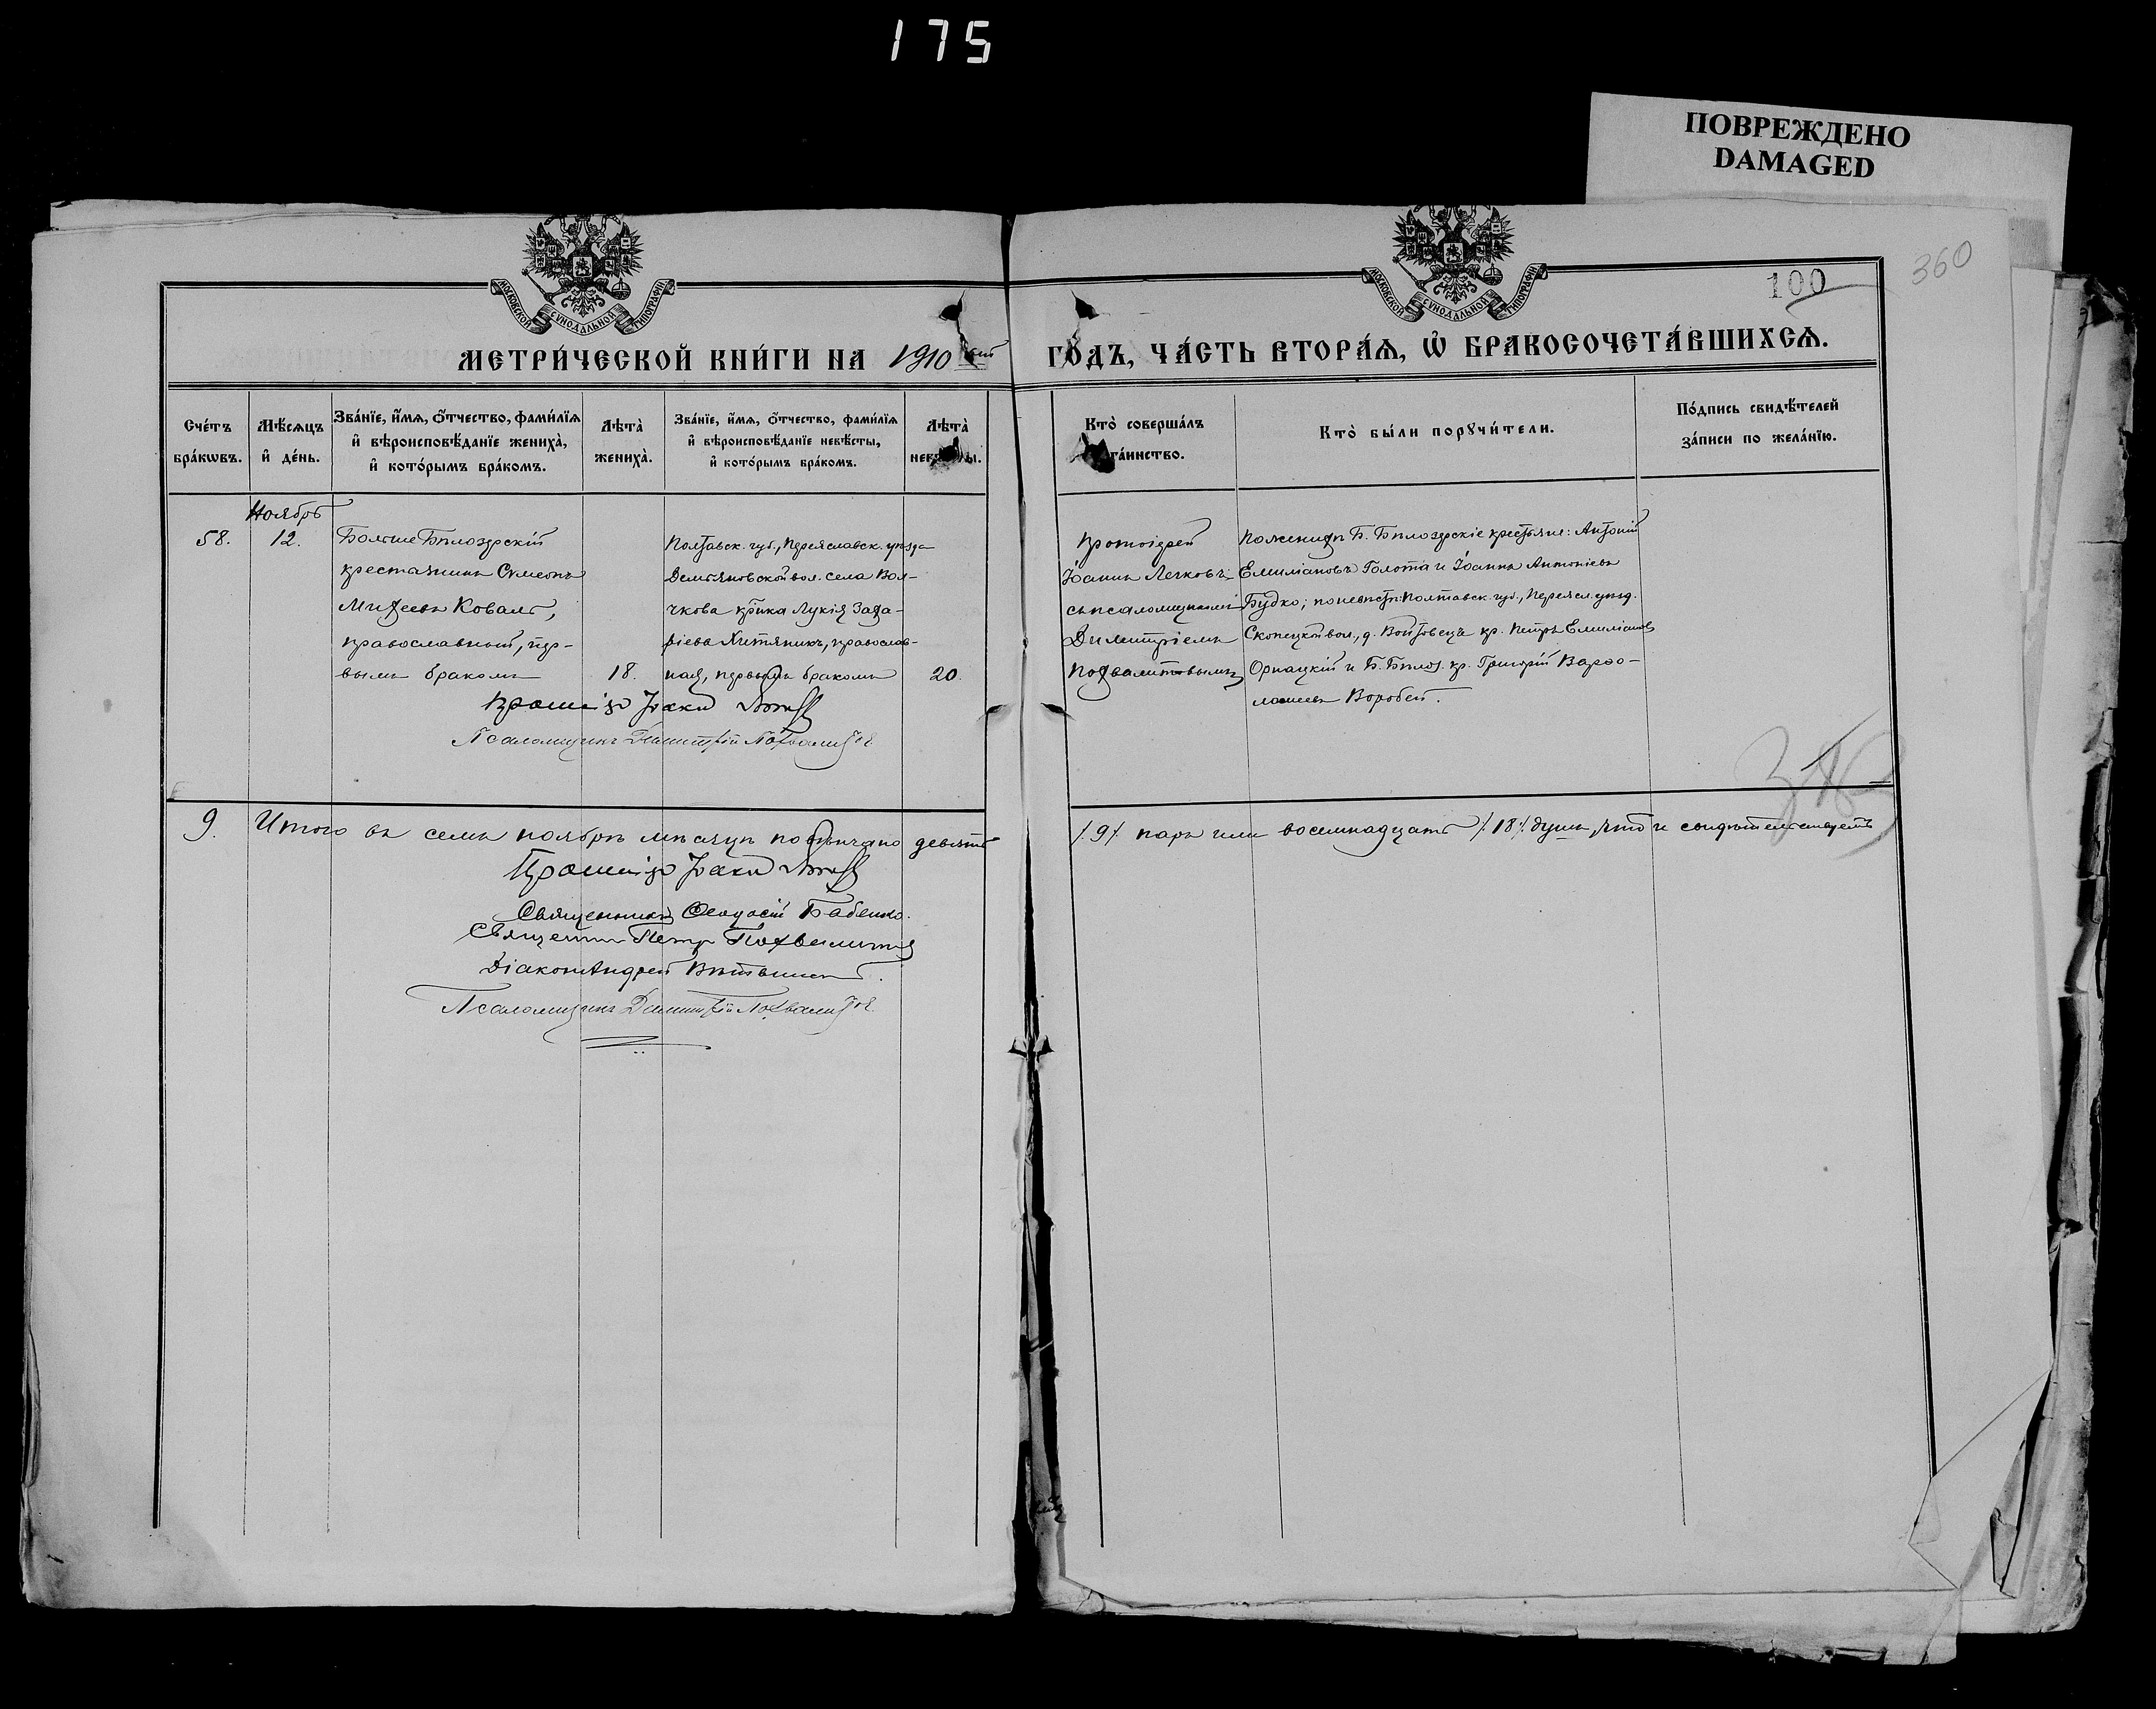 175
ПОВРЕЖДЕНО
DAMAGED
360
100
МОСКОВСКОЙ СѴНОДАЛЬНОЙ ТИПОГРАФІИ
МОСКОВСКОЙ СѴНОДАЛЬНОЙ ТИПОГРАФІИ
МЕТРИ́ЧЕСКОЙ КНИ́ГИ НА 1910 ГО́ДЪ, ЧА́СТЬ ВТОРА́Я, Ѽ БРАКОСОЧЕТА́ВШИХСЯ.
Сче́тъ бра́кѡвъ.
Мѣ́сяцъ и҆ де́нь.
Зва́нїе, и҆́мя, ѻ҆́тчество, фами́лїя и҆ вѣроисповѣ́данїе жениха̀, и҆ кото́рымъ бра́комъ.
Лѣта̀ жениха̀.
Зва́нїе, и҆́мя, ѻ҆́тчество, фами́лїя и҆ вѣроисповѣ́данїе невѣ́сты, и҆ кото́рымъ бра́комъ.
Лѣта̀
Кто̀ соверша́лъ та́инство.
Кто̀ бы́ли порꙋчи́тели.
По́дпись свидѣ́телей за́писи по жела́нїю.
58.
Ноябрь
12.
Больше Бѣлозерскій
крестьянинъ Сѵмеонъ
Михеевъ Коваль,
православный, пер-
вымъ бракомъ
18.
Полтавск. губ., Переяславск. уѣзда
Демьяновской вол. села Вол-
чкова кр-нка Лукія
православ-
ная, первымъ бракомъ
20.
Протоіерей
Іоаннъ
съ псаломщикомъ
Димитріемъ
Похвалитовымъ
По женихѣ Б. Бѣлозерскіе крестьяне: Антоній
Емиліановъ Голота и Іоаннъ Антоніевъ
Будко; по невѣстѣ: Полтавск. губ., Переясл. уѣзд.
вол., д. Войтовецъ кр. Петръ Емиліановъ
и Б. Бѣлоз. кр. Григорій Варѳо-
ломеевъ Воробей.
Псаломщикъ Димитрій Похвалитовъ
9.
Итого въ семъ ноябрѣ мѣсяцѣ повѣнчано девять /.9/. паръ или восемнадцать /.18/. душъ, что и свидѣтельствуемъ
Священникъ Ѳеодосій Бабенко.
Священникъ Петръ Похвалитовъ
Діаконъ Андрей
Псаломщикъ Димитрій Похвалитовъ